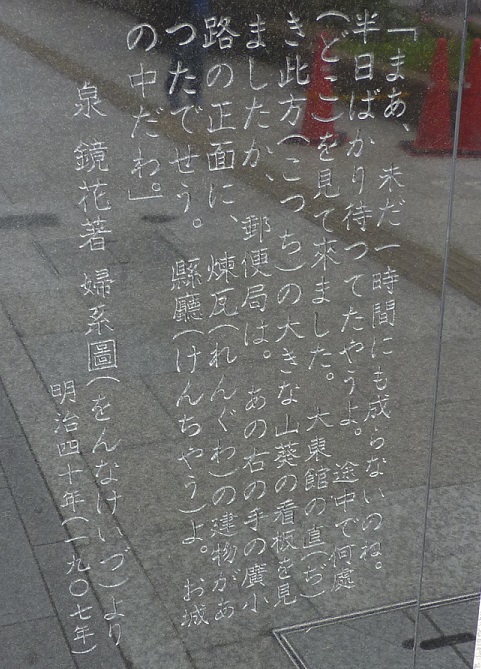 「まあ、未だ一時間にも成らないのね。
半日ばかり待つてたやうよ。途中で何處
(どこ)を見て來ました。大東館の直(ぢ)
き此方(こつち)の大きな山葵の看板を見
ましたか、郵便局は。あの右の手の廣小
路の正面に、煉瓦(れんぐわ)の建物があ
つたでせう。縣廳(けんちやう)よ。お城
の中だわ。」
泉鏡花著 婦系圖(をんなけいづ)より
明治四十年(一九〇七年)